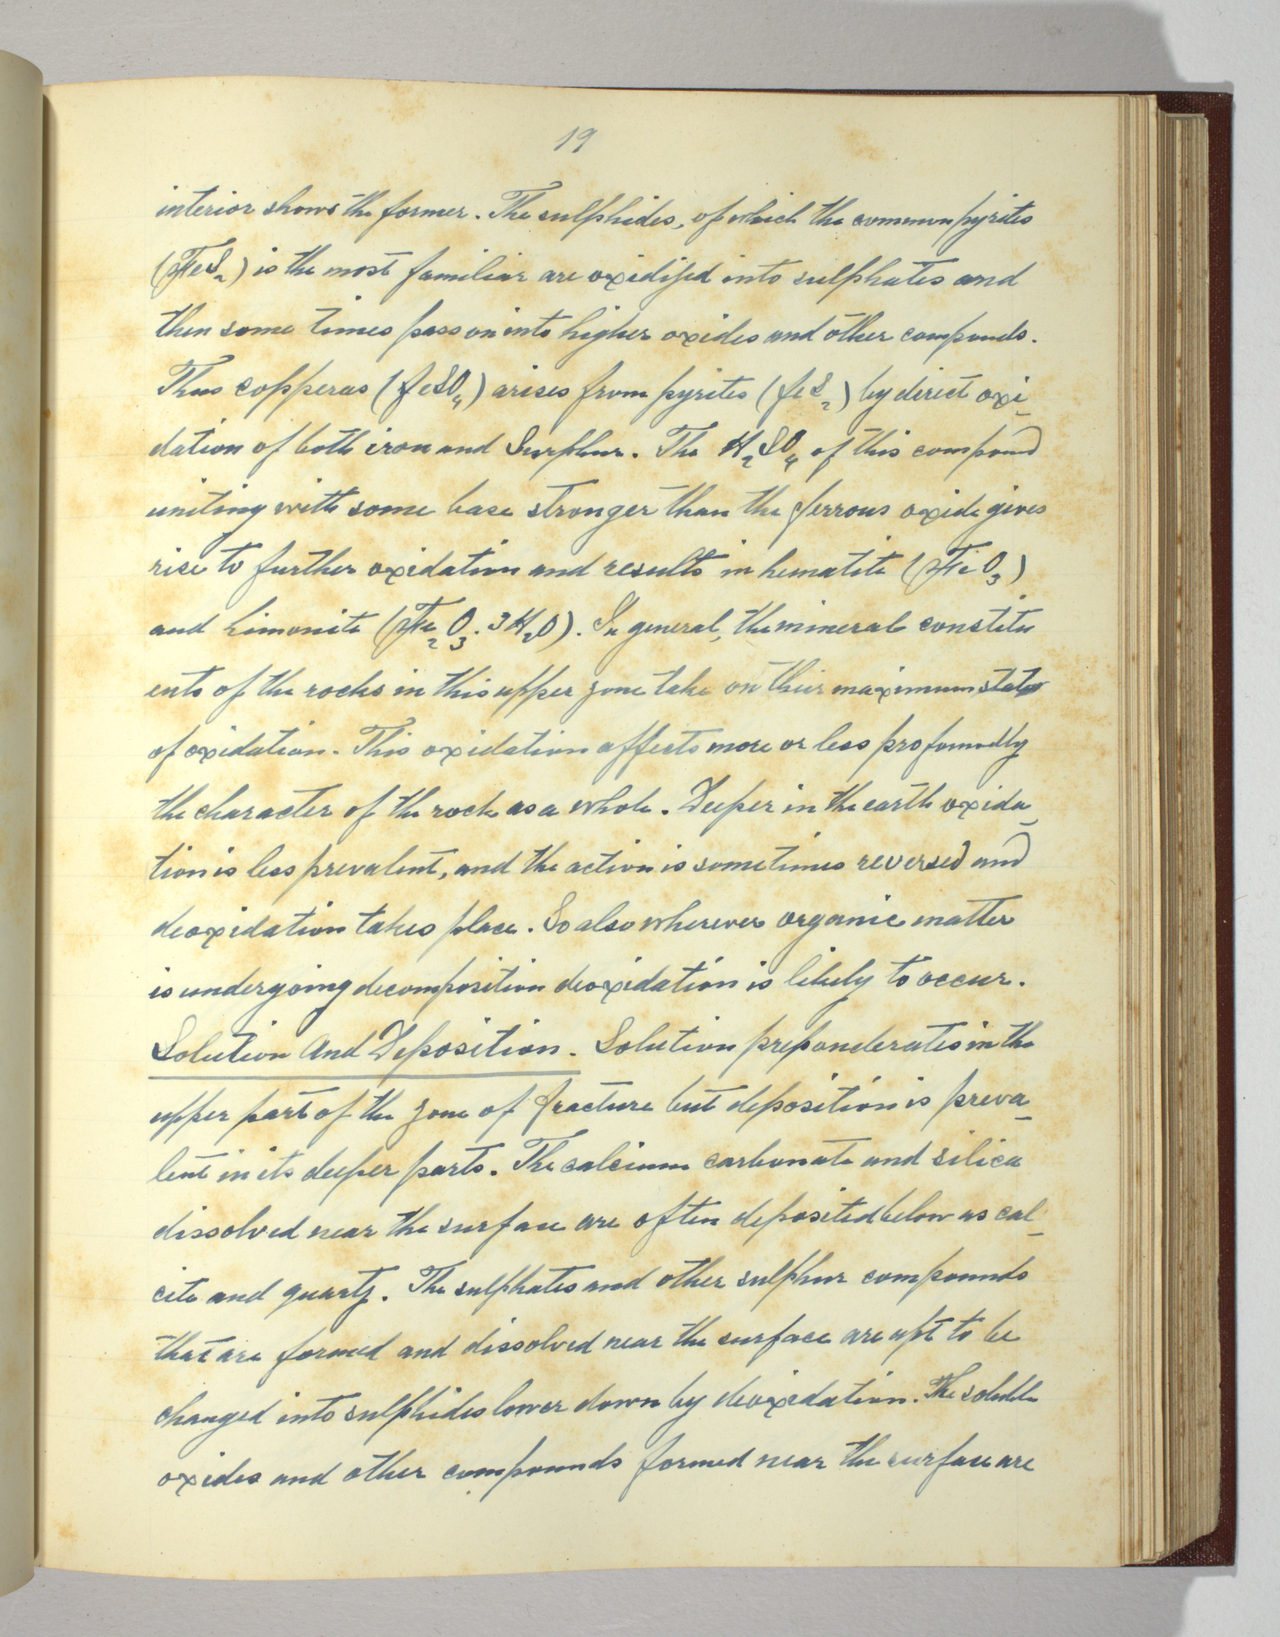 19
interior shows the former. The sulphides, of which the common pyrites
(FeS2) is the most familiar are oxidised into sulphates and
then some times pass on into higher oxides and other compounds.
Thus copperas (FeSO4) arises from pyrites (FeS2) by direct oxi-
dation of both iron and Surphur. The H2SO4 of this compound
uniting with some base stronger than the ferrous oxide gives
rise to further oxidation and results in hematite (Fe O3)
and Limonite (Fe2O3.3H2O). In general, the mineral constitu
ents of the rocks in this upper zone take on their maximum state
of oxidation. This oxidation affects more or less profoundly
the character of the rock as a whole. Deeper in the earth oxida-
tion is less prevalent, and the action is sometimes reversed and
deoxidation takes place. So also wherever organic matter
is undergoing decomposition deoxidation is likely to occur.
Solution And Deposition. Solution preponderates in the
upper part of the zone of fracture but deposition is preva-
lent in its deeper parts. The calcium carbonate and silica
dissolved near the surface are often deposited below as cal-
cite and quartz. The sulphates and other sulphur compounds
that are formed and dissolved near the surface are apt to be
changed into sulphides lower down by deoxidation. The soluble
oxides and other compounds formed near the surface are